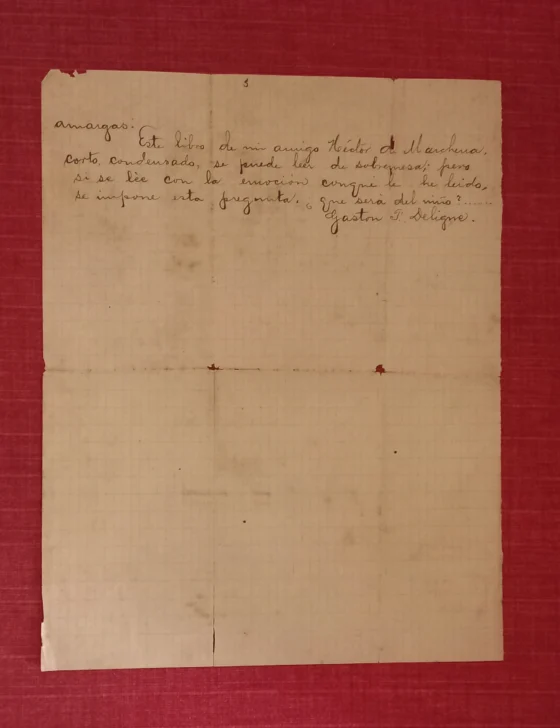 3
amargas.
Este libro de mi amigo Héctor d Marchena,
corto, condensado, se puede leer de sobremesa; pero
si se lèe con la emoción conque le he leido,
se impone esta pregunta. ¿ que será del niño?......
Gaston F. Deligne.